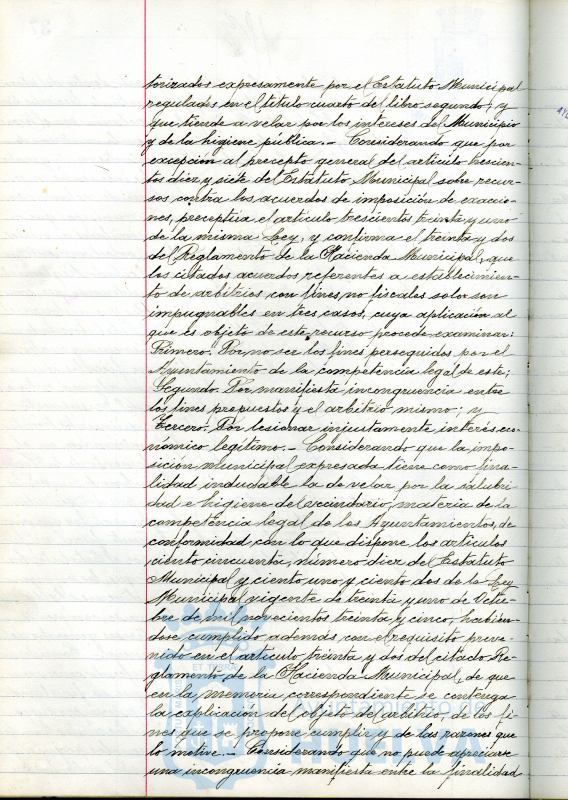 torizados expresamente por el Estatuto Municipal
regulados en el título cuarto del libro segundo, y
que tiende a velar por los intereses del Municipio
y de la higiene pública.- Considerando que por
excepción al precepto general del artículo trescien-
tos diez y siete del Estatuto Municipal sobre recur-
sos contra los acuerdos de imposición de exaccio-
nes, preceptúa el artículo trescientos treinta y uno
de la misma Ley, y confirma el treinta y dos
del Reglamento de la Hacienda Municipal, que
los citados acuerdos referentes a establecimien-
to de arbitrios con fines no fiscales solo son
impugnables en tres casos, cuya aplicación al
que es objeto de este recurso procede examinar:
Primero. Por no ser los fines perseguidos por el
Ayuntamiento de la competencia legal de este;
Segundo. Por manifiesta incongruencia entre
los fines propuestos y el arbitrio mismo; y
Tercero. Por lesionar injustamente interés eco-
nómico legítimo.- Considerando que la impo-
sición municipal expresada tiene como fina-
lidad indudable la de velar por la salubri-
dad e higiene del vecindario, materia de la
competencia legal de los Ayuntamientos, de
conformidad con lo que dispone los artículos
ciento cincuenta, número diez del Estatuto
Municipal y ciento uno y ciento dos de la Ley
Municipal vigente de treinta y uno de Octu-
bre de mil novecientos treinta y cinco, habién-
dose cumplido además con el requisito preve-
nido en el artículo treinta y dos del citado Re-
glamento de la Hacienda Municipal, de que
en la memoria correspondiente se contenga
la explicación del objeto del arbitrio, de los fi-
nes que se propone cumplir y de las razones que
lo motive.- Considerando que no puede apreciarse
una incongruencia manifiesta entre la finalidad
Ayuntamiento de